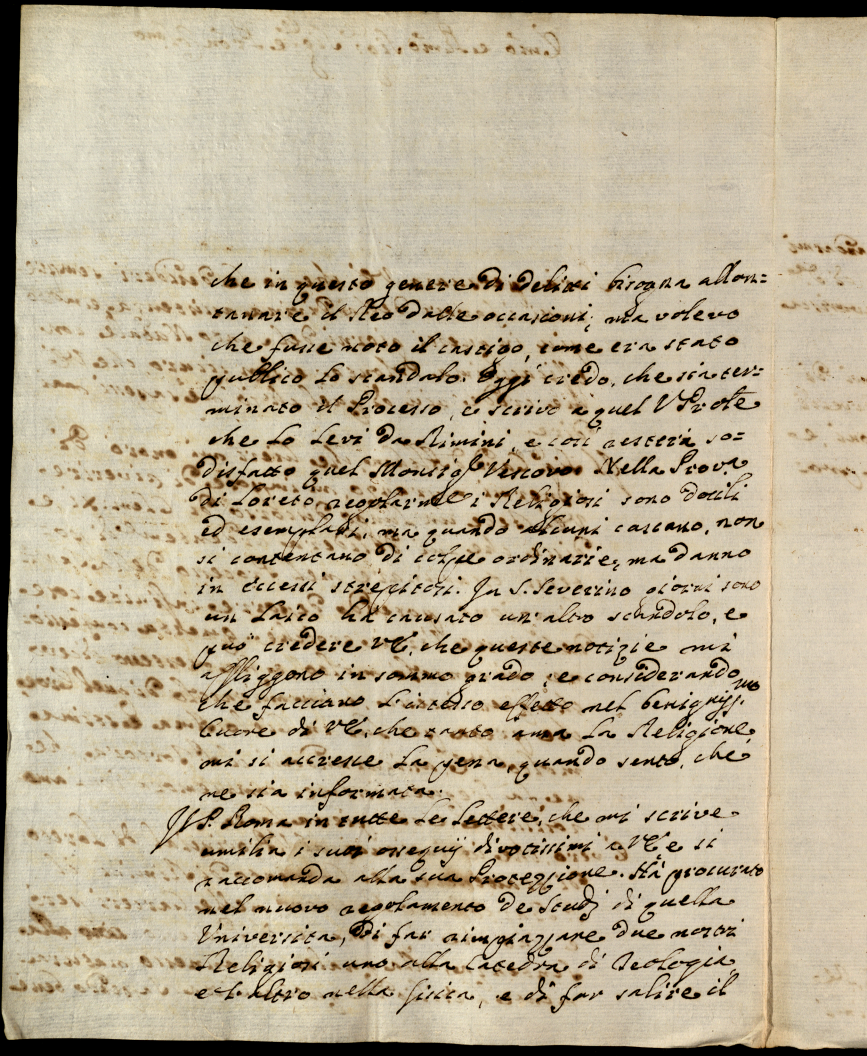 che in questo genere di delitti bisogna allon=
tanare il Reo dalle occasioni; ma volevo
che fusse noto il castigo, come era stato
publico lo scandalo. Oggi credo, che sia ter=
minato il Processo, e scrivo à quel V Prôle
che lo levi da Rimini, e così resterà so=
disfatto quel Monsigr Vescovo. Nella Prova
di Loreto regolarmte i Religiosi sono docili
ed esemplari, ma quando alcuni cascano, non
si contentano di colpe ordinarie, ma danno
in eccessi strepitosi. In S. Severino giorni sono
un Laico ha causato un'altro scandolo, e
può credere VE, che queste notizie mi
affliggono in sommo grado; e considerando
che facciano l'istesso effetto nel benigniss.mo
Cuore di VE, che tanto ama la Religione
mi si accresce la pena, quando sento, che
ne sia informata.
Il P. Roma in tutte le lettere, che mi scrive
umilia i suoi ossequij divotissimi a VE e si
raccomanda alla sua Protezzione. Hà procurato
nel nuovo regolamento de Studj di quella
Università, di far rimpiazzare due nostri
Religiosi uno alla Catedra di Teologia,
e l'altro nella fisica, e di far salire il